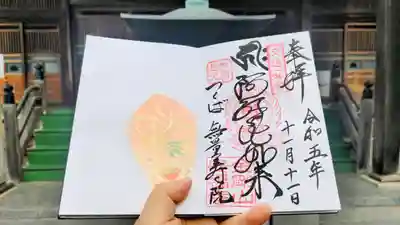 奉拝
令和五年
十一月十一日
阿弥陀如来
つくば 無量寿院